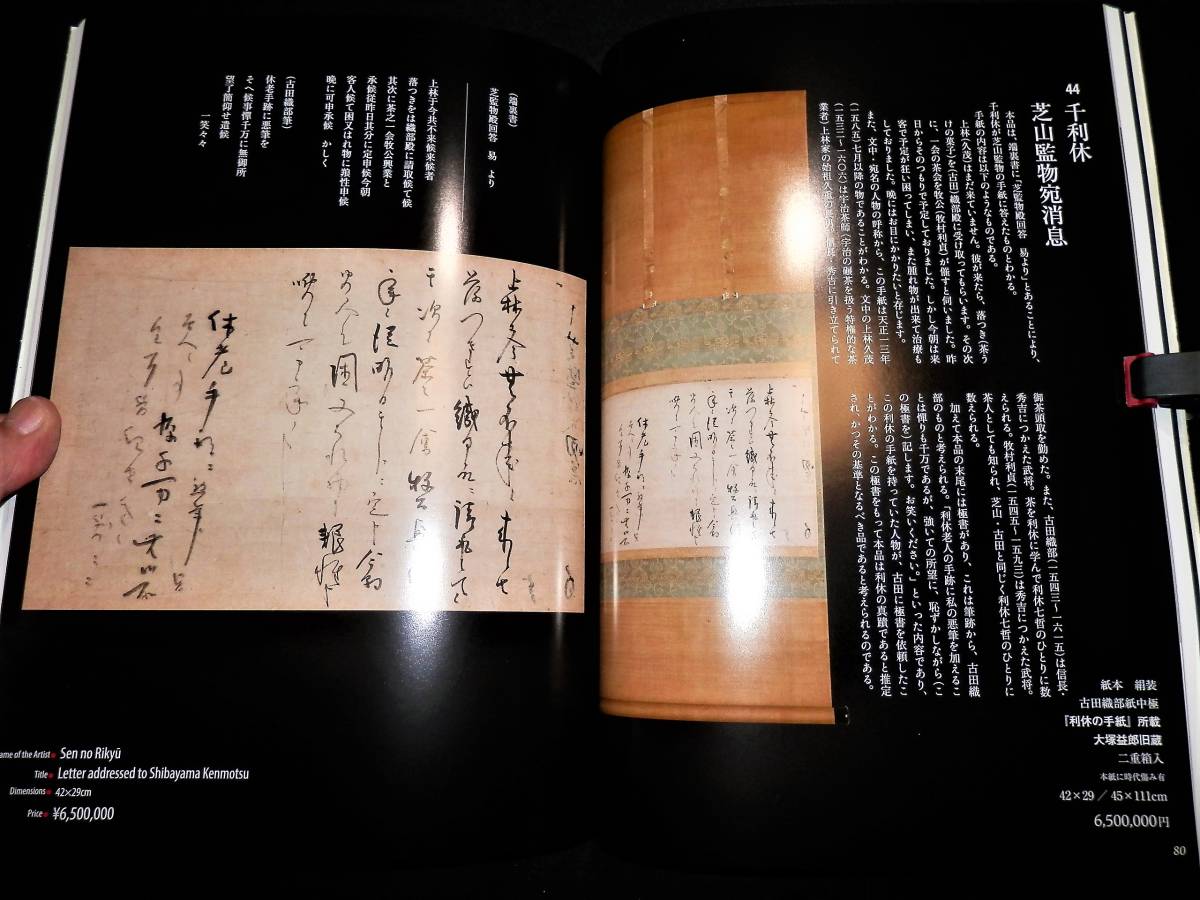 44
千利休
芝山監物宛消息
本品は、端裏書に「芝監物殿回答　易より」とあることにより、
千利休が芝山監物の手紙に答えたものとわかる。
手紙の内容は以下のようなものである。
上林(久茂)はまだ来ていません。彼が来たら、落つき(茶う
けの菓子)を(古田)織部殿に受け取ってもらいます。その次
に、一会の茶会を牧公(牧村利貞)が催すと伺いました。昨
日からそのつもりで予定しておりました。しかし今朝は来
客で予定が狂い困ってしまい、また腫れ物が出来て治療も
しておりました。晩にはお目にかかりたいと存じます。
また、文中・宛名の人物の呼称から、この手紙は天正一三年
(一五八五)七月以降の物であることがわかる。文中の上林久茂
(一五三二〜一六〇六)は宇治茶師(宇治の碾茶を扱う特権的な茶
業者)上林家の始祖久重の
信長・秀吉に引き立てられて
御茶頭取を勤めた。また、古田織部(一五四三〜一六一五)は信長・
秀吉につかえた武将。茶を利休に学んで利休七哲のひとりに数
えられる。牧村利貞(一五四五〜一五九三)は秀吉につかえた武将。
茶人としても知られ、芝山・古田と同じく利休七哲のひとりに
数えられる。
加えて本品の末尾には極書があり、これは筆跡から、古田織
部のものと考えられる。「利休老人の手跡に私の悪筆を加えるこ
とは憚りも千万であるが、強いての所望に、恥ずかしながら(こ
の極書を)記します。お笑いください。」といった内容であり、
この利休の手紙を持っていた人物が、古田に極書を依頼したこ
とがわかる。この極書をもって本品は利休の真蹟であると推定
され、かつその基準となるべき品であると考えられるのである。
紙本　絹装
古田織部紙中極
『利休の手紙』所載
大塚益郎旧蔵
二重箱入
本紙に時代傷み有
42×29／45×111cm
6,500,000円
80
(端裏書)
芝監物殿回答　易　より
上林于今共不来候来候者
落つきをは織部殿に請取候て候
其次に茶之一会牧公興業と
承候従昨日其分に定申候今朝
客人候て困又はれ物に療性申候
晩に可申承候　かしく
(古田織部筆)
休老手跡に悪筆を
そへ候事憚千万に無御所
望了簡仰せ遣候
一笑々々
ame of the Artist Sen no Rikyū
Title Letter addressed to Shibayama Kenmotsu
Dimensions 42×29cm
Price ¥6,500,000